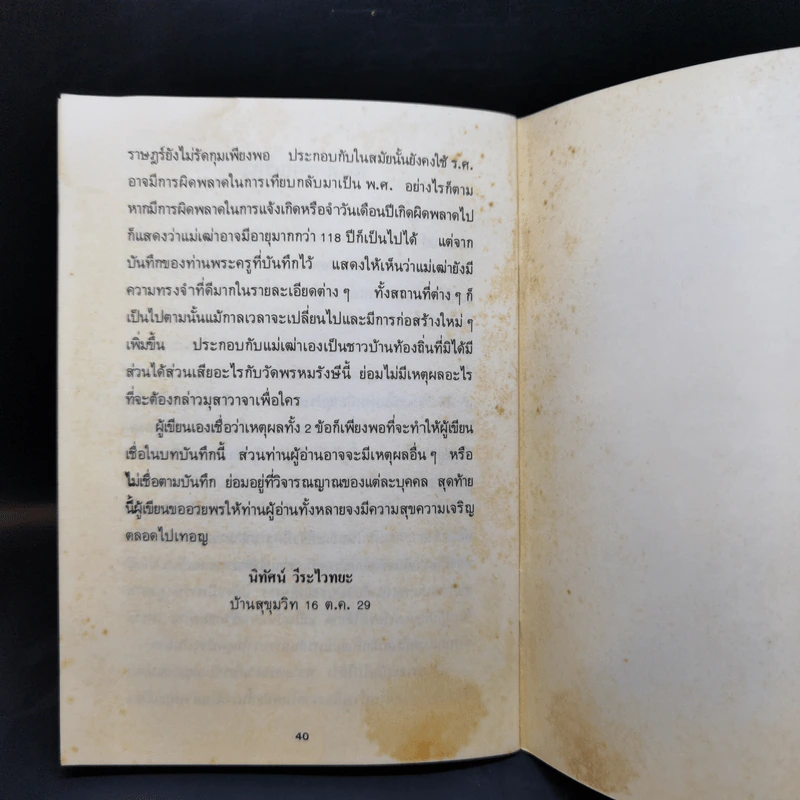 ราษฎร์ยังไม่รัดกุมเพียงพอ ประกอบกับในสมัยนั้นยังคงใช้ ร.ศ.
อาจมีการผิดพลาดในการเทียบกลับมาเป็น พ.ศ. อย่างไรก็ตาม
หากมีการผิดพลาดในการแจ้งเกิดหรือจำวันเดือนปีเกิดผิดพลาดไป
ก็แสดงว่าแม่เฒ่าอาจมีอายุมากกว่า 118 ปีก็เป็นไปได้ แต่จาก
บันทึกของท่านพระครูที่บันทึกไว้ แสดงให้เห็นว่าแม่เฒ่ายังมี
ความทรงจำที่ดีมากในรายละเอียดต่าง ๆ ทั้งสถานที่ต่าง ๆ ก็
เป็นไปตามนั้นแม้กาลเวลาจะเปลี่ยนไปและมีการก่อสร้างใหม่ ๆ
เพิ่มขึ้น ประกอบกับแม่เฒ่าเองเป็นชาวบ้านท้องถิ่นที่มิได้มี
ส่วนได้ส่วนเสียอะไรกับวัดพรหมรังษีนี้ ย่อมไม่มีเหตุผลอะไร
ที่จะต้องกล่าวมุสาวาจาเพื่อใคร
ผู้เขียนเองเชื่อว่าเหตุผลทั้ง 2 ข้อก็เพียงพอที่จะทำให้ผู้เขียน
เชื่อในบทบันทึกนี้ ส่วนท่านผู้อ่านอาจจะมีเหตุผลอื่น ๆ หรือ
ไม่เชื่อตามบันทึก ย่อมอยู่ที่วิจารณญาณของแต่ละบุคคล สุดท้าย
นี้ผู้เขียนขออวยพรให้ท่านผู้อ่านทั้งหลายจงมีความสุขความเจริญ
ตลอดไปเทอญ
นิทัศน์ วีระไวทยะ
บ้านสุขุมวิท 16 ต.ค. 29
40